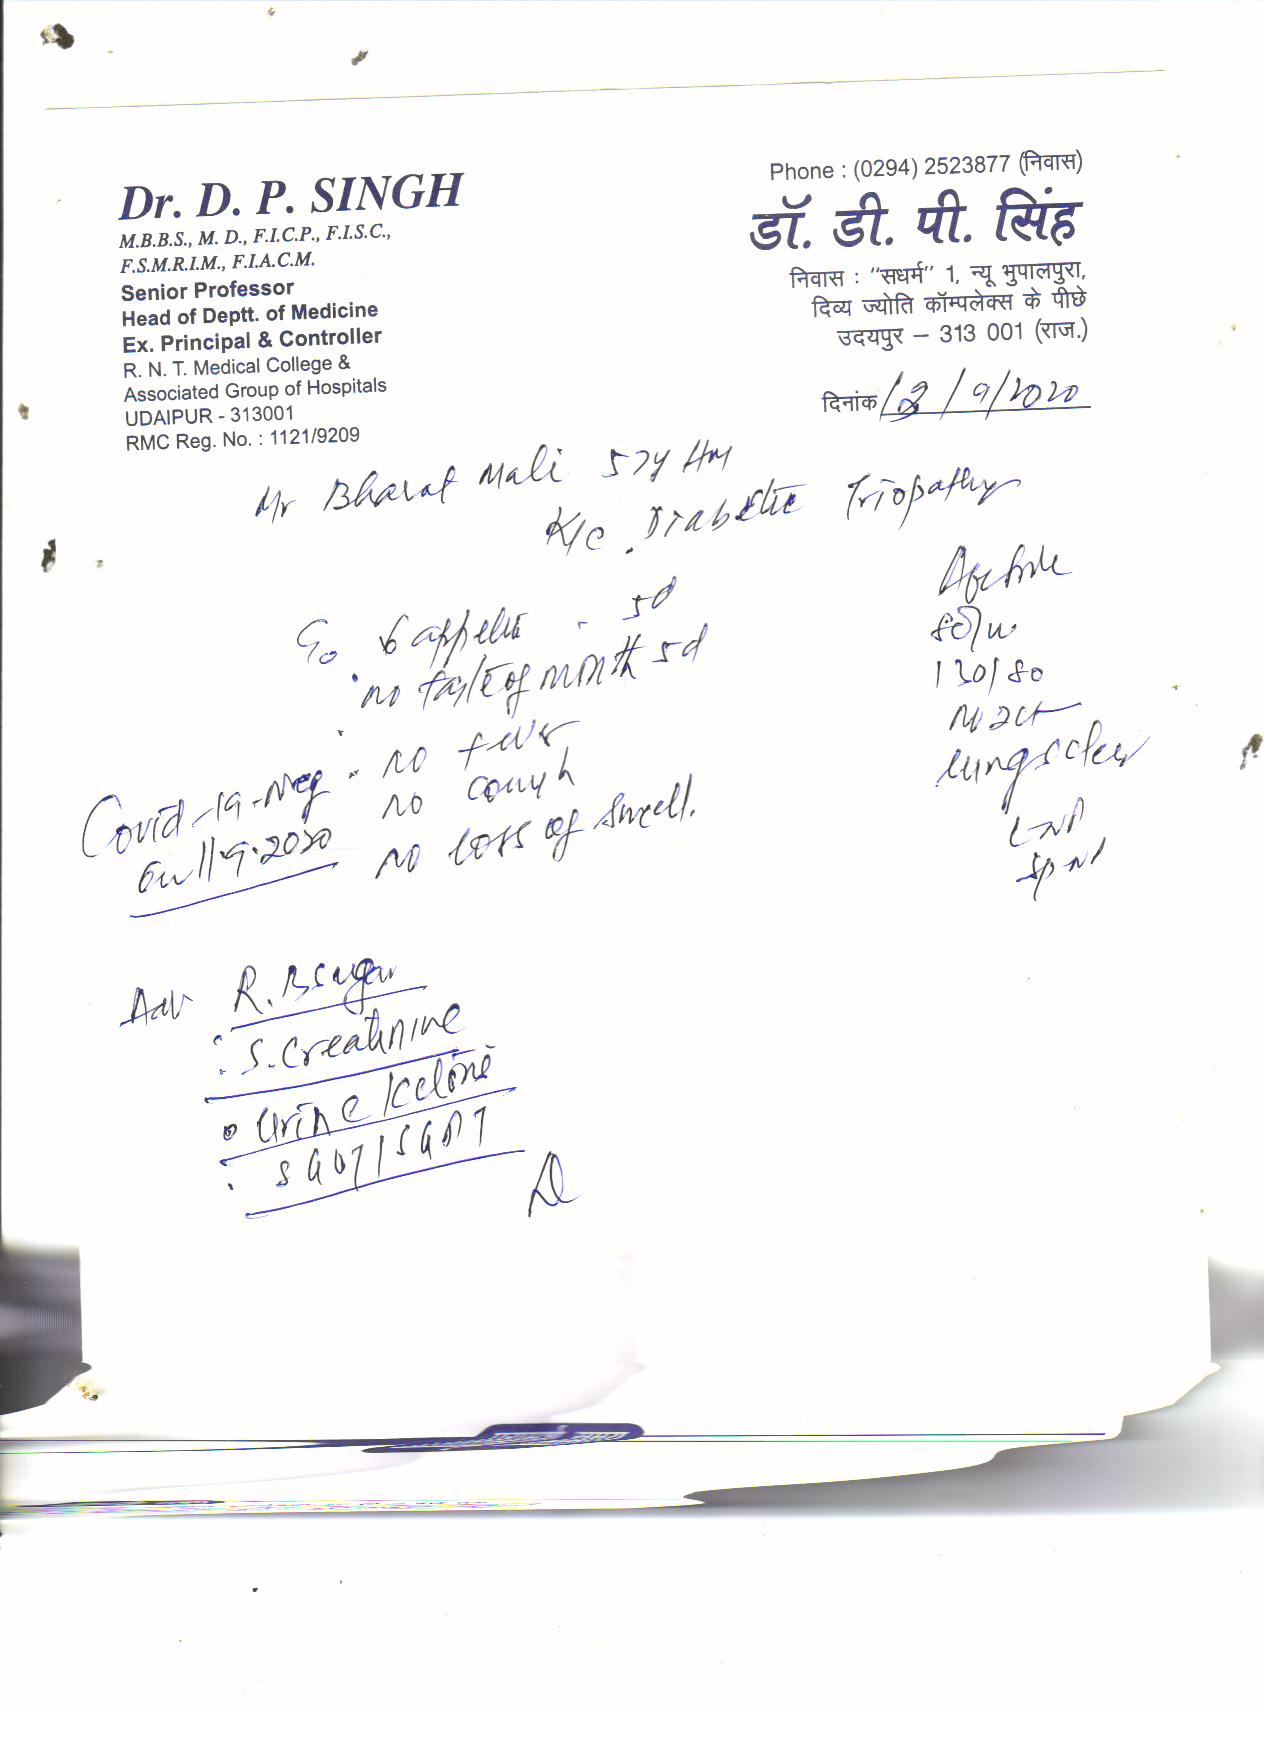 Dr. D. P. SINGH
M.B.B.S., M. D., F.I.C.P., F.I.S.C.,
F.S.M.R.I.M., F.I.A.C.M.
Senior Professor
Head of Deptt. of Medicine
Ex. Principal & Controller
R. N. T. Medical College &
Associated Group of Hospitals
UDAIPUR - 313001
RMC Reg. No. : 1121/9209
Phone : (0294) 2523877 (निवास)
डॉ. डी. पी. सिंह
निवास : "सधर्म" 1, न्यू भुपालपुरा,
दिव्य ज्योति कॉम्पलेक्स के पीछे
उदयपुर – 313 001 (राज.)
दिनांक 12/9/2020
Mr Bharat Mali 57y HM
K/c . Diabetic Triopathy
appetite - 5d
no taste of mouth 5d
no fever
no cough
no loss of smell.
Covid-19-Neg
on 11.9.2020
Afebrile
80/m
130/80
lungs clear
L-NP
Sp NP
Adv R. Bsugar
S. Creatinine
Urine Ketone
SGOT/SGPT